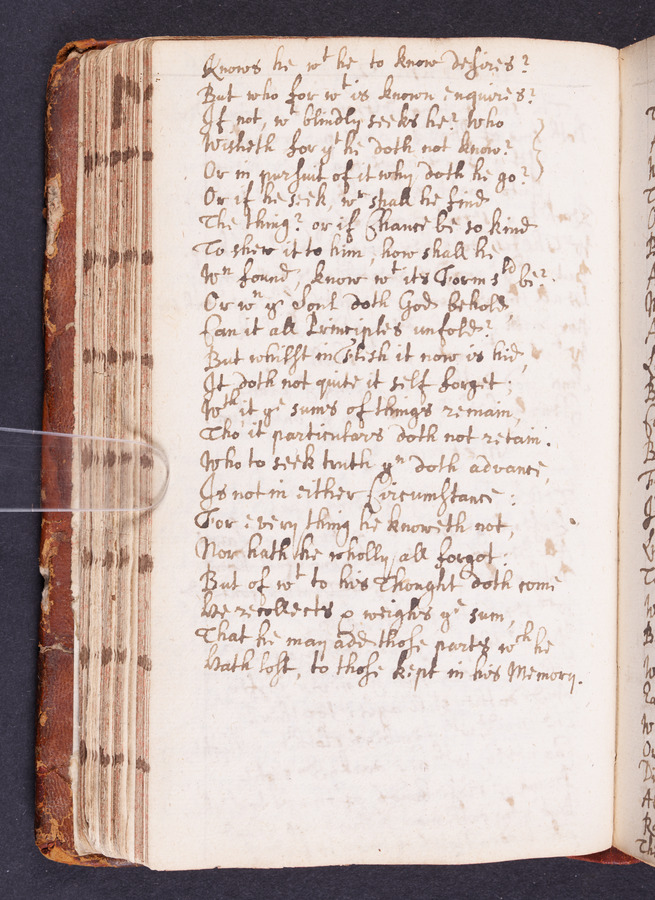 Knows he wt he to know desires?
But who for wt is known enquires?
If not, wt blindly seeks he? who
Wisheth for yt he doth not know?
Or in pursuit of it why doth he go?
Or if he seek, wre shall he find
The thing? or if Chance be so kind
To shew it to him, how shall he
Wn found, know wt its Form sld be?
Or wn ye Soul doth God behold,
Can it all Principles unfold?
But whilst in Flesh it now is hid,
It doth not quite it self forget;
Wth it ye sums of things remain,
Tho' it particulars doth not retain.
Who to seek truth yn doth advance,
Is not in either Circumstance:
For every thing he knoweth not,
Nor hath he wholly all forgot:
But of wt to his Thought doth come
He recollects & weighs ye sum,
That he may add those parts wch he
Hath lost, to those kept in his Memory.